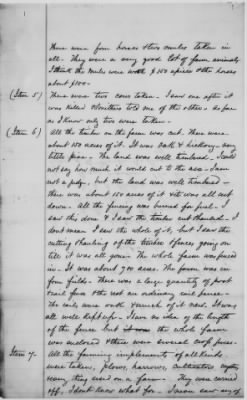 There were four horses & two mules taken in
all. They were a very good lot of farm animals
I think the mules were worth $150 apiece & the horses
about $100-
(Item 5) There were two cows taken. I saw one after it
was killed & Montero told me of the other. So far
as I know only two were taken-
(Item 6) All the timber on the farm was cut. There were
about 100 acres of it. It was oak & hickory- very
little pine. The land was well timbered. I could
not say how much it would cut to the acre- I am
not a judge, but the land was well timbered-
there was about 100 acres of it & it was all cut
down. All the fencing was burned for fuel. I
saw this done & I saw the timber cut & hauled- I
dont mean I saw the whole of it, but I saw the
cutting & hauling of the timber & fences going on
till it was all gone. The whole farm was fenced
in. It was about 700 acres. The farm was in
four fields. There was a large quantity of post
rail fence & the rest an ordinary rail fence-
The rails were worth of it new. It was
all well kept up. I have no idea of the length
of the fence but the whole farm
was enclosed & there were several cross fences-
Item 7. All the farming implements of all kinds
were taken, plows, harrows, cultivators everything
they used on a farm- They were carried
off, I dont know what for- I saw any of